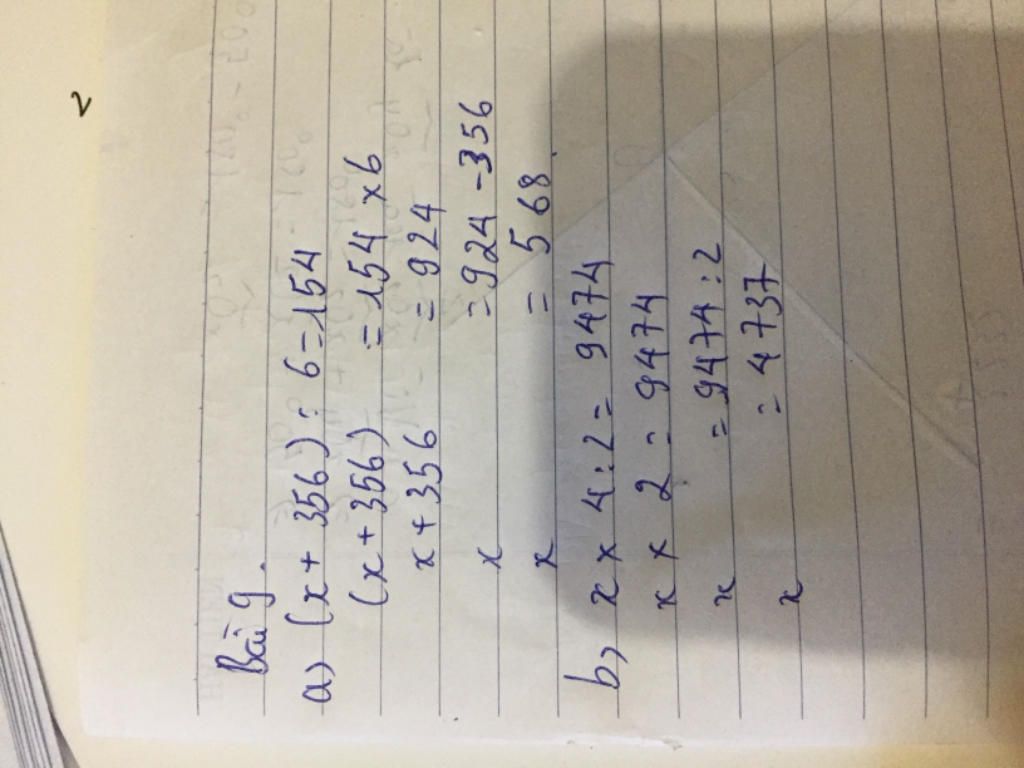 Bài 9.
a) (x + 356) : 6 = 154
(x + 356) = 154 x 6
x + 356 = 924
x = 924 - 356
x = 568.
b, x x 4 : 2 = 9474
x x 2 = 9474
x = 9474 : 2
x = 4737